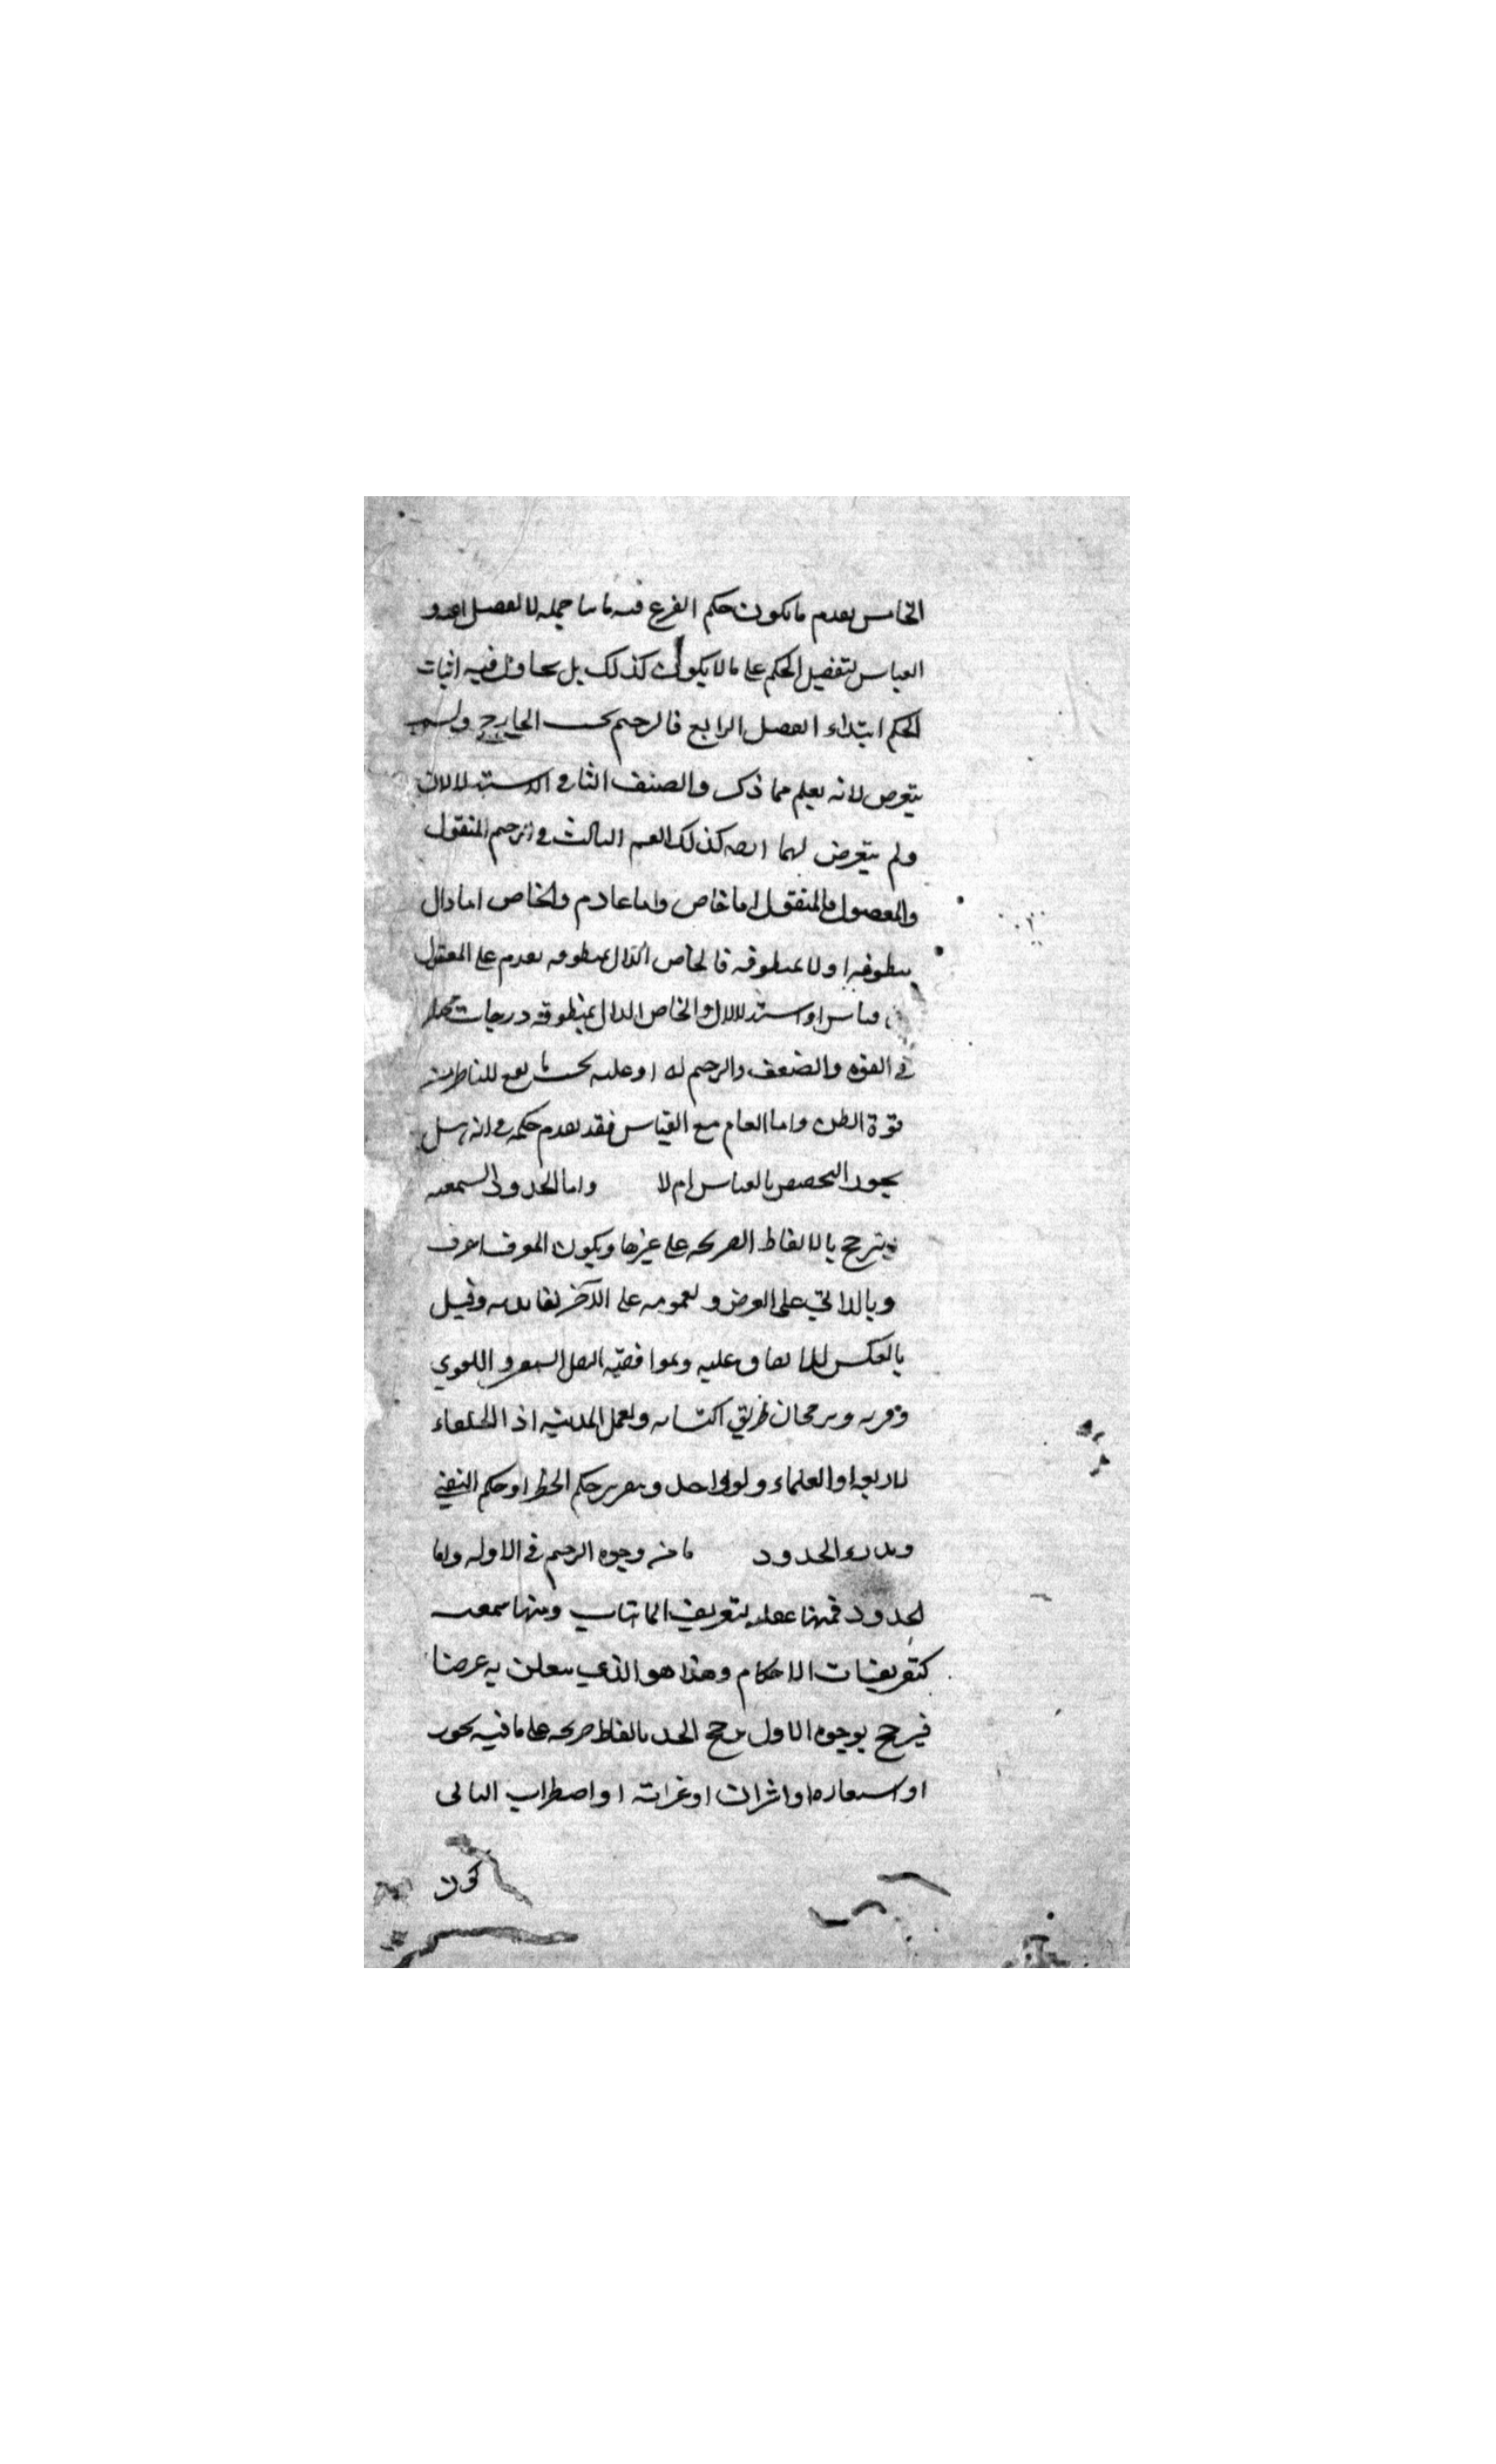 الخامس يقدم ما يكون حكم الفرع فيه ثابتا جملة لا تفصيلا
القياس لتفصيل الحكم على ما لا يكون كذلك بل يحاول فيه اثبات
الحكم ابتداء الفصل الرابع في الترجيح بحسب الخارج ولم
يتعرض لانه يعلم مما ذكر والصنف الثاني الاستدلالان
ولم يتعرض لهما كذلك القسم الثالث في ترجيح المنقول
والمعقول والمنقول اما خاص واما عام والخاص اما دال
بمنطوقه او لا بمنطوقه فالخاص الدال بمنطوقه يقدم على المعقول
قياس او استدلال والخاص الدال بمنطوقه درجات
في القوة والضعف والترجيح له او عليه بحسب ما يقع للناظر من
قوة الظن واما العام مع القياس فقد تقدم حكمه في انه هل
يجوز التخصيص بالقياس ام لا واما الحدود السمعية
فيترجح بالالفاظ الصريحة على غيرها ويكون المعرف اعرف
وبالذاتي على العرضي وبعمومه على الآخر لفائدته وقيل
بالعكس للاتفاق عليه وبموافقته النقل السمعي واللغوي
وقربه وبرجحان طريق اكتسابه وبعمل المدينة او الخلفاء
الاربعة او العلماء ولو واحد وبتقرير حكم الحظر او حكم النفي
وبدرء الحدود وجوه الترجيح في الاوله واما
الحدود فمنها عقلية لتعريف الماهيات ومنها سمعية
كتعريفات الاحكام وهذا هو الذي يتعلق به غرضنا
فيرجح بوجوه الاول يرجح الحد بالفاظ صريحة على ما فيه تجوز
او استعارة او اشتراك او غرابة او اضطراب الثاني
كون